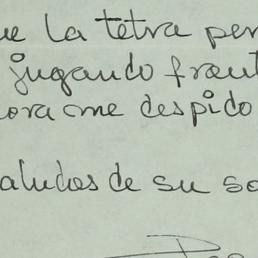 ue la tetra per
jugando frent
ora me despido
aludos de su so